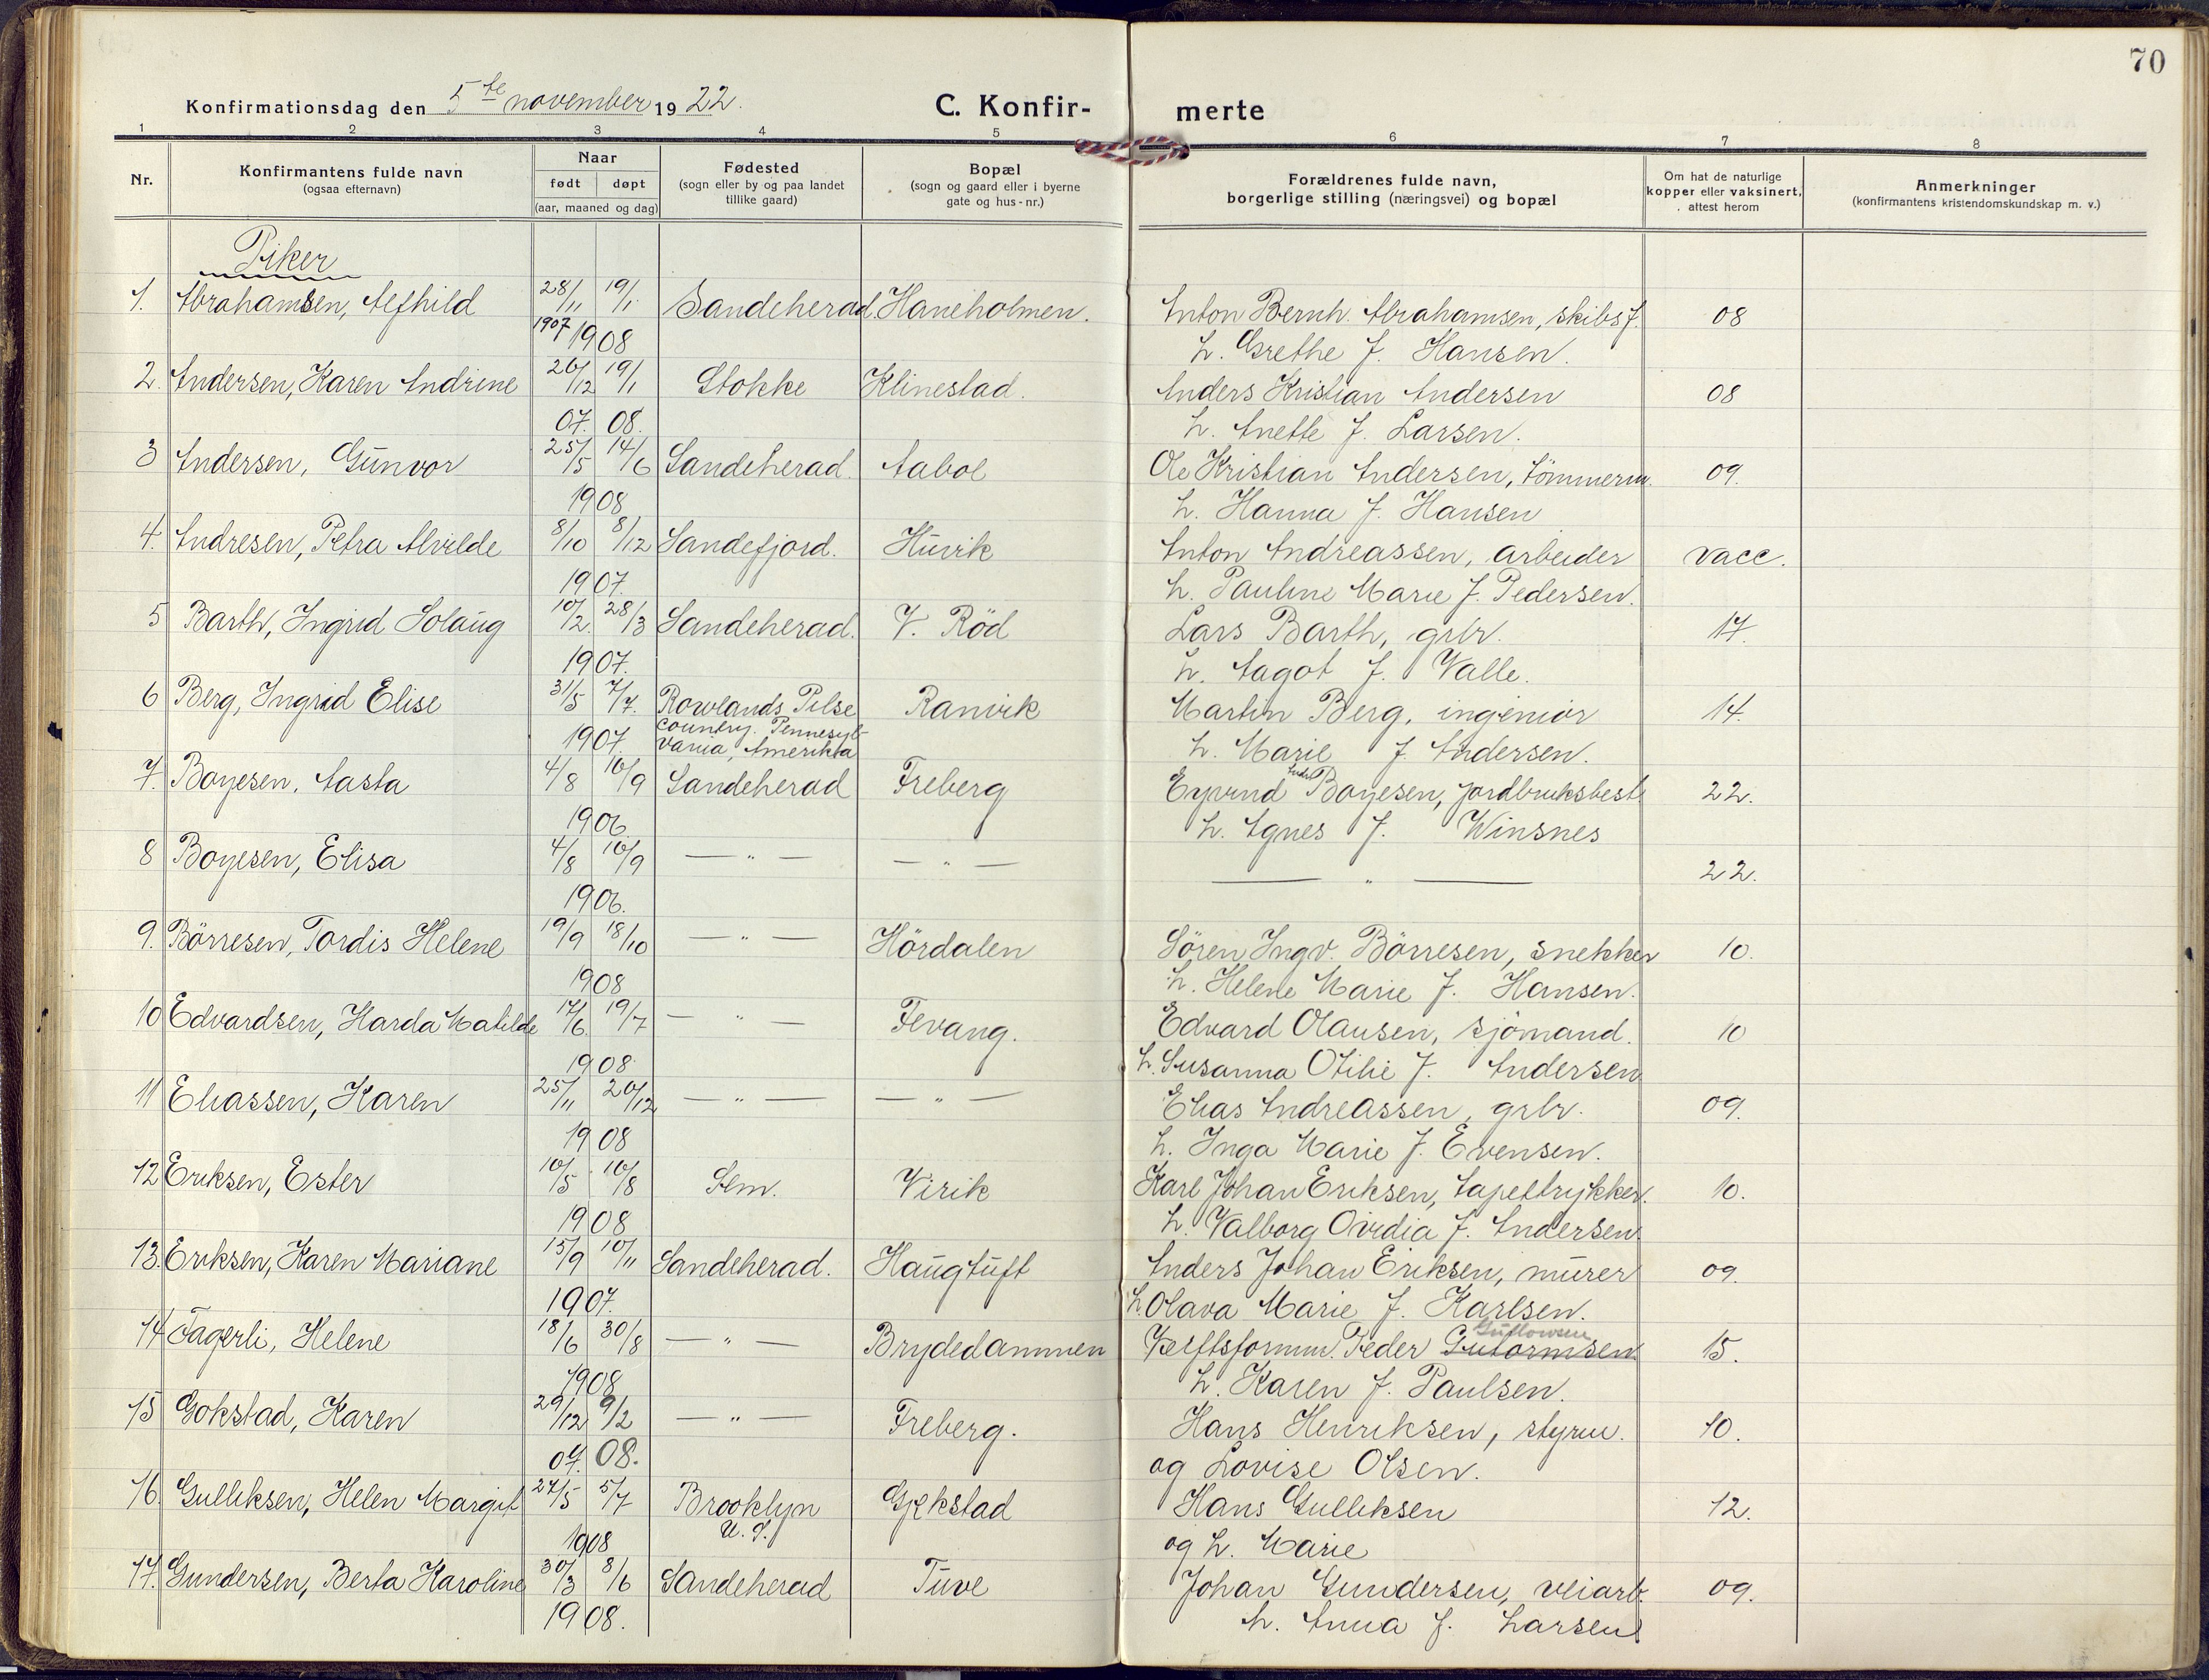 70
Konfirmationsdag den 5te november 1922.
C. Konfir-merte
1 2 3 4 5 6 7 8
Nr.
Konfirmantens fulde navn
(ogsaa efternavn)
Naar
født døpt
(aar, maaned og dag)
Fødested
(sogn eller by og paa landet
tillike gaard)
Bopæl
(sogn og gaard eller i byerne
gate og hus-nr.)
Forældrenes fulde navn,
borgerlige stilling (næringsvei) og bopæl
Om hat de naturlige
kopper eller vaksinert,
attest herom
Anmerkninger
(konfirmantens kristendomskundskap m. v.)
Piker
1. Abrahamsen, Alfhild 28/11 19/1 Sandeherad. Haneholmen. Anton Bernh. Abrahamsen, skibsf. 08
1907 1908 h. Grethe f. Hansen.
2. Andersen, Karen Andrine 26/12 19/1 Stokke Klinestad. Anders Kristian Andersen 08
07. 08. h. Anette f. Larsen.
3 Andersen, Gunvor 25/5 14/6 Sandeherad. Aabol Ole Kristian Andersen, tömmerm. 09.
1908 h. Hanna f. Hansen
4. Andresen, Petra Alvilde 8/10 8/12 Sandefjord. Huvik Anton Andreassen, arbeider vacc.
1907. h. Pauline Marie f. Pedersen.
5 Barth, Ingrid Solaug 10/2. 28/3 Sandeherad. V. Röd Lars Barth, grbr. 17.
1907. h. Aagot f. Valle.
6 Berg, Ingrid Elise 31/5 7/7. Rowlands Pilse Ranvik Martin Berg, ingeniör 14.
1907. country. Pennesyl-
vania, Amerikka h. Marie f. Andersen.
7. Boyesen, Aasta 4/8 16/9 Sandeherad Freberg Eyvind Boyesen, jordbruksbest. 22.
1906 h. Agnes f. Winsnes
8 Boyesen, Elisa 4/8 16/9 — " — — " — — " — 22.
1906.
9. Börresen, Tordis Helene 19/9 18/10 — " — Hördalen Sören Ingv. Börresen, snekker 10.
1908 h. Helene Marie f. Hansen.
10 Edvardsen, Harda Matilde 17/6 19/7 — " — Fevang. Edvard Olausen, sjömand. 10
1908 h. Susanna Otilie f. Andersen
11 Eliassen, Karen 25/11 20/12 — " — — " — Elias Andreassen, grbr. 09.
1908 h. Inga Marie f. Evensen.
12 Eriksen, Ester 10/5 16/8 Sem. Virik Karl Johan Eriksen, tapettrykker. 10.
1908 h. Valborg Ovidia f. Andersen
13. Eriksen, Karen Mariane 15/9 10/11 Sandeherad. Haugtuft Anders Johan Eriksen, murer 09.
1907. h. Olava Marie f. Karlsen.
14 Fagerli, Helene 18/6 30/8 — " — Brydedammen Værftsformm. Peder Gutormsen 15.
1908 h. Karen f. Paulsen.
15 Gokstad, Karen 29/12 9/2 — " — Freberg. Hans Henriksen, styrm. 10.
07. 08. og Lovise Olsen.
16. Gulliksen, Helen Margit 27/5 5/7 Brooklyn Gjekstad Hans Gulliksen 12.
1908 U. S. og h. Marie
17. Gundersen, Berta Karoline 30/3 8/6 Sandeherad Tuve Johan Gundersen, veiarb. 09.
1908. h. Anna f. Larsen